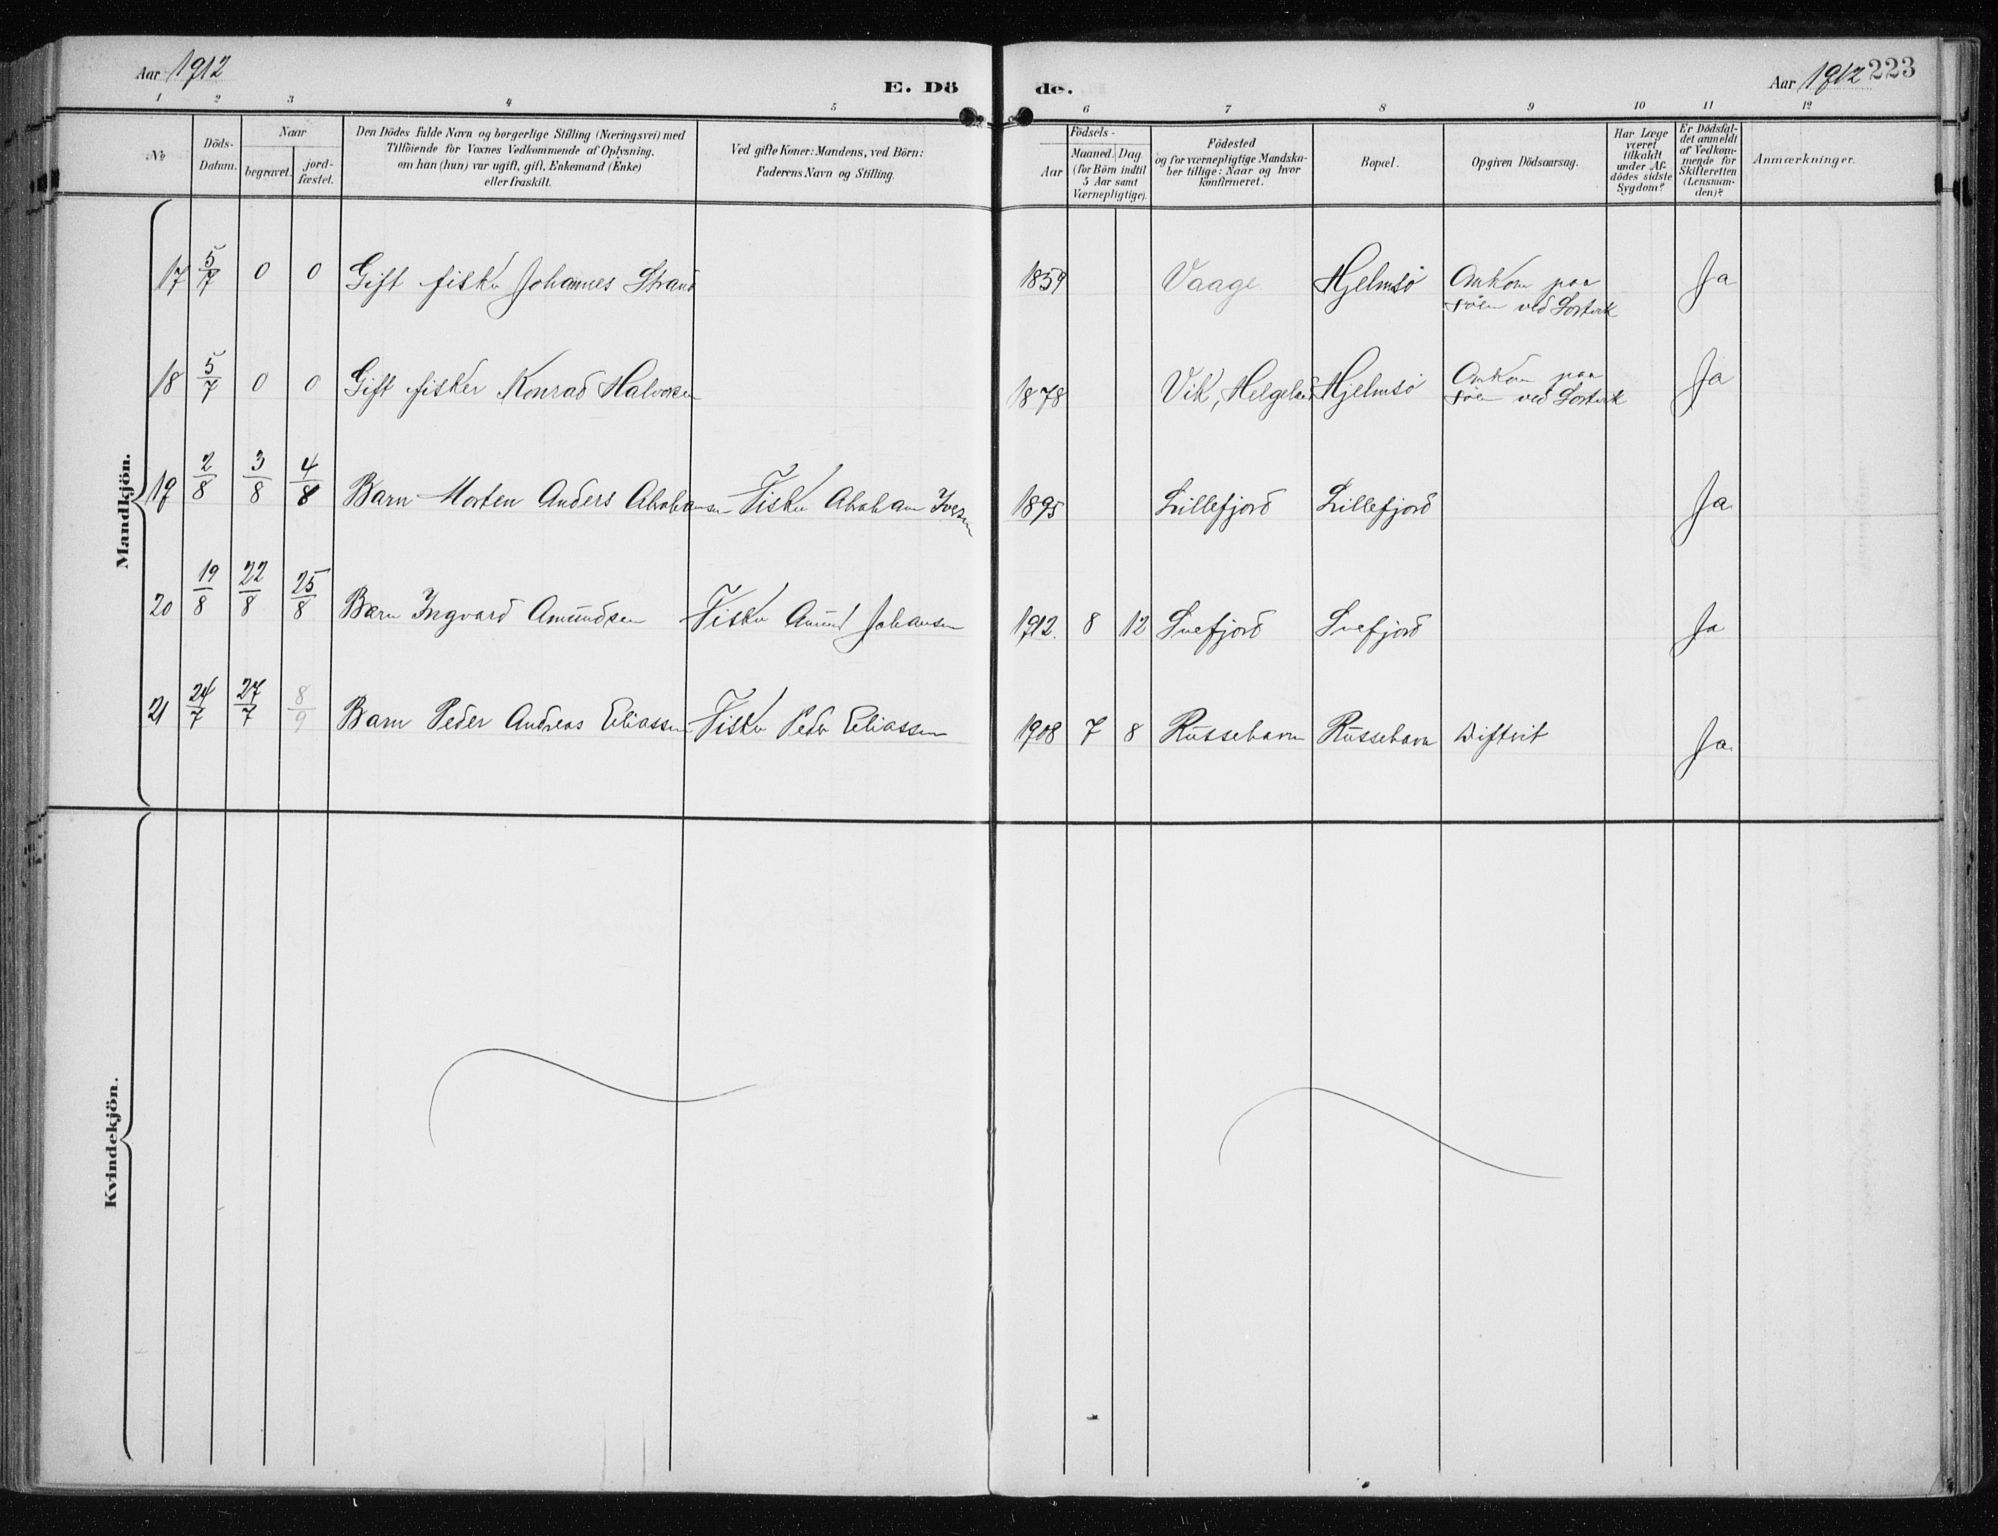 Aar 1912
E. Dö
de.
Aar 1912
223
1 2 3 4 5 6 7 8 9 10 11 12
No
Döds-
Datum.
Naar
begravet.
jord-
fæstet.
Den Dödes fulde Navn og borgerlige Stilling (Næringsvei) med
Tilföiende for Voxnes Vedkommende af Oplysning,
om han (hun) var ugift, gift, Enkemand (Enke)
eller fraskilt.
Ved gifte Koner: Mandens, ved Börn:
Faderens Navn og Stilling.
Födsels-
Aar
Maaned. Dag.
(for Börn indtil
5 Aar samt
Værnepligtige).
Födested
og for værnepligtige Mandska-
ber tillige: Naar og hvor
konfirmeret.
Bopæl.
Opgiven Dödsaarsag.
Har Læge
været
tilkaldt
under Af-
dödes sidste
Sygdom?
Er Dödsfal-
det anmeldt
af Vedkom-
mende for
Skifteretten
(Lensman-
den)?
Anmærkninger.
Mandkjön.
17 5/7 0 0 Gift fisker Johannes Strand 1859 Vaage. Hjelmsö Omkom paa Ja
söen ved
18 5/7 0 0 Gift fisker Konrad Halvorsen 1878 Vik, Helgeland Hjelmsö Omkom paa Ja
söen ved
19 2/8 3/8 4/8 Barn Morten Anders Abrahamsen Fisker Abraham Iversen 1895 Lillefjord Lillefjord Ja
20 19/8 22/8 25/8 Barn Ingvard Amundsen Fisker Amund Johansen 1912. 8 12 Snefjord Snefjord Ja
21 24/7 27/7 8/9 Barn Peder Andreas Eliassen Fisker Peder Eliassen 1908 7 8 Russehavn Russehavn Diftrit Ja.
Kvindekjön.